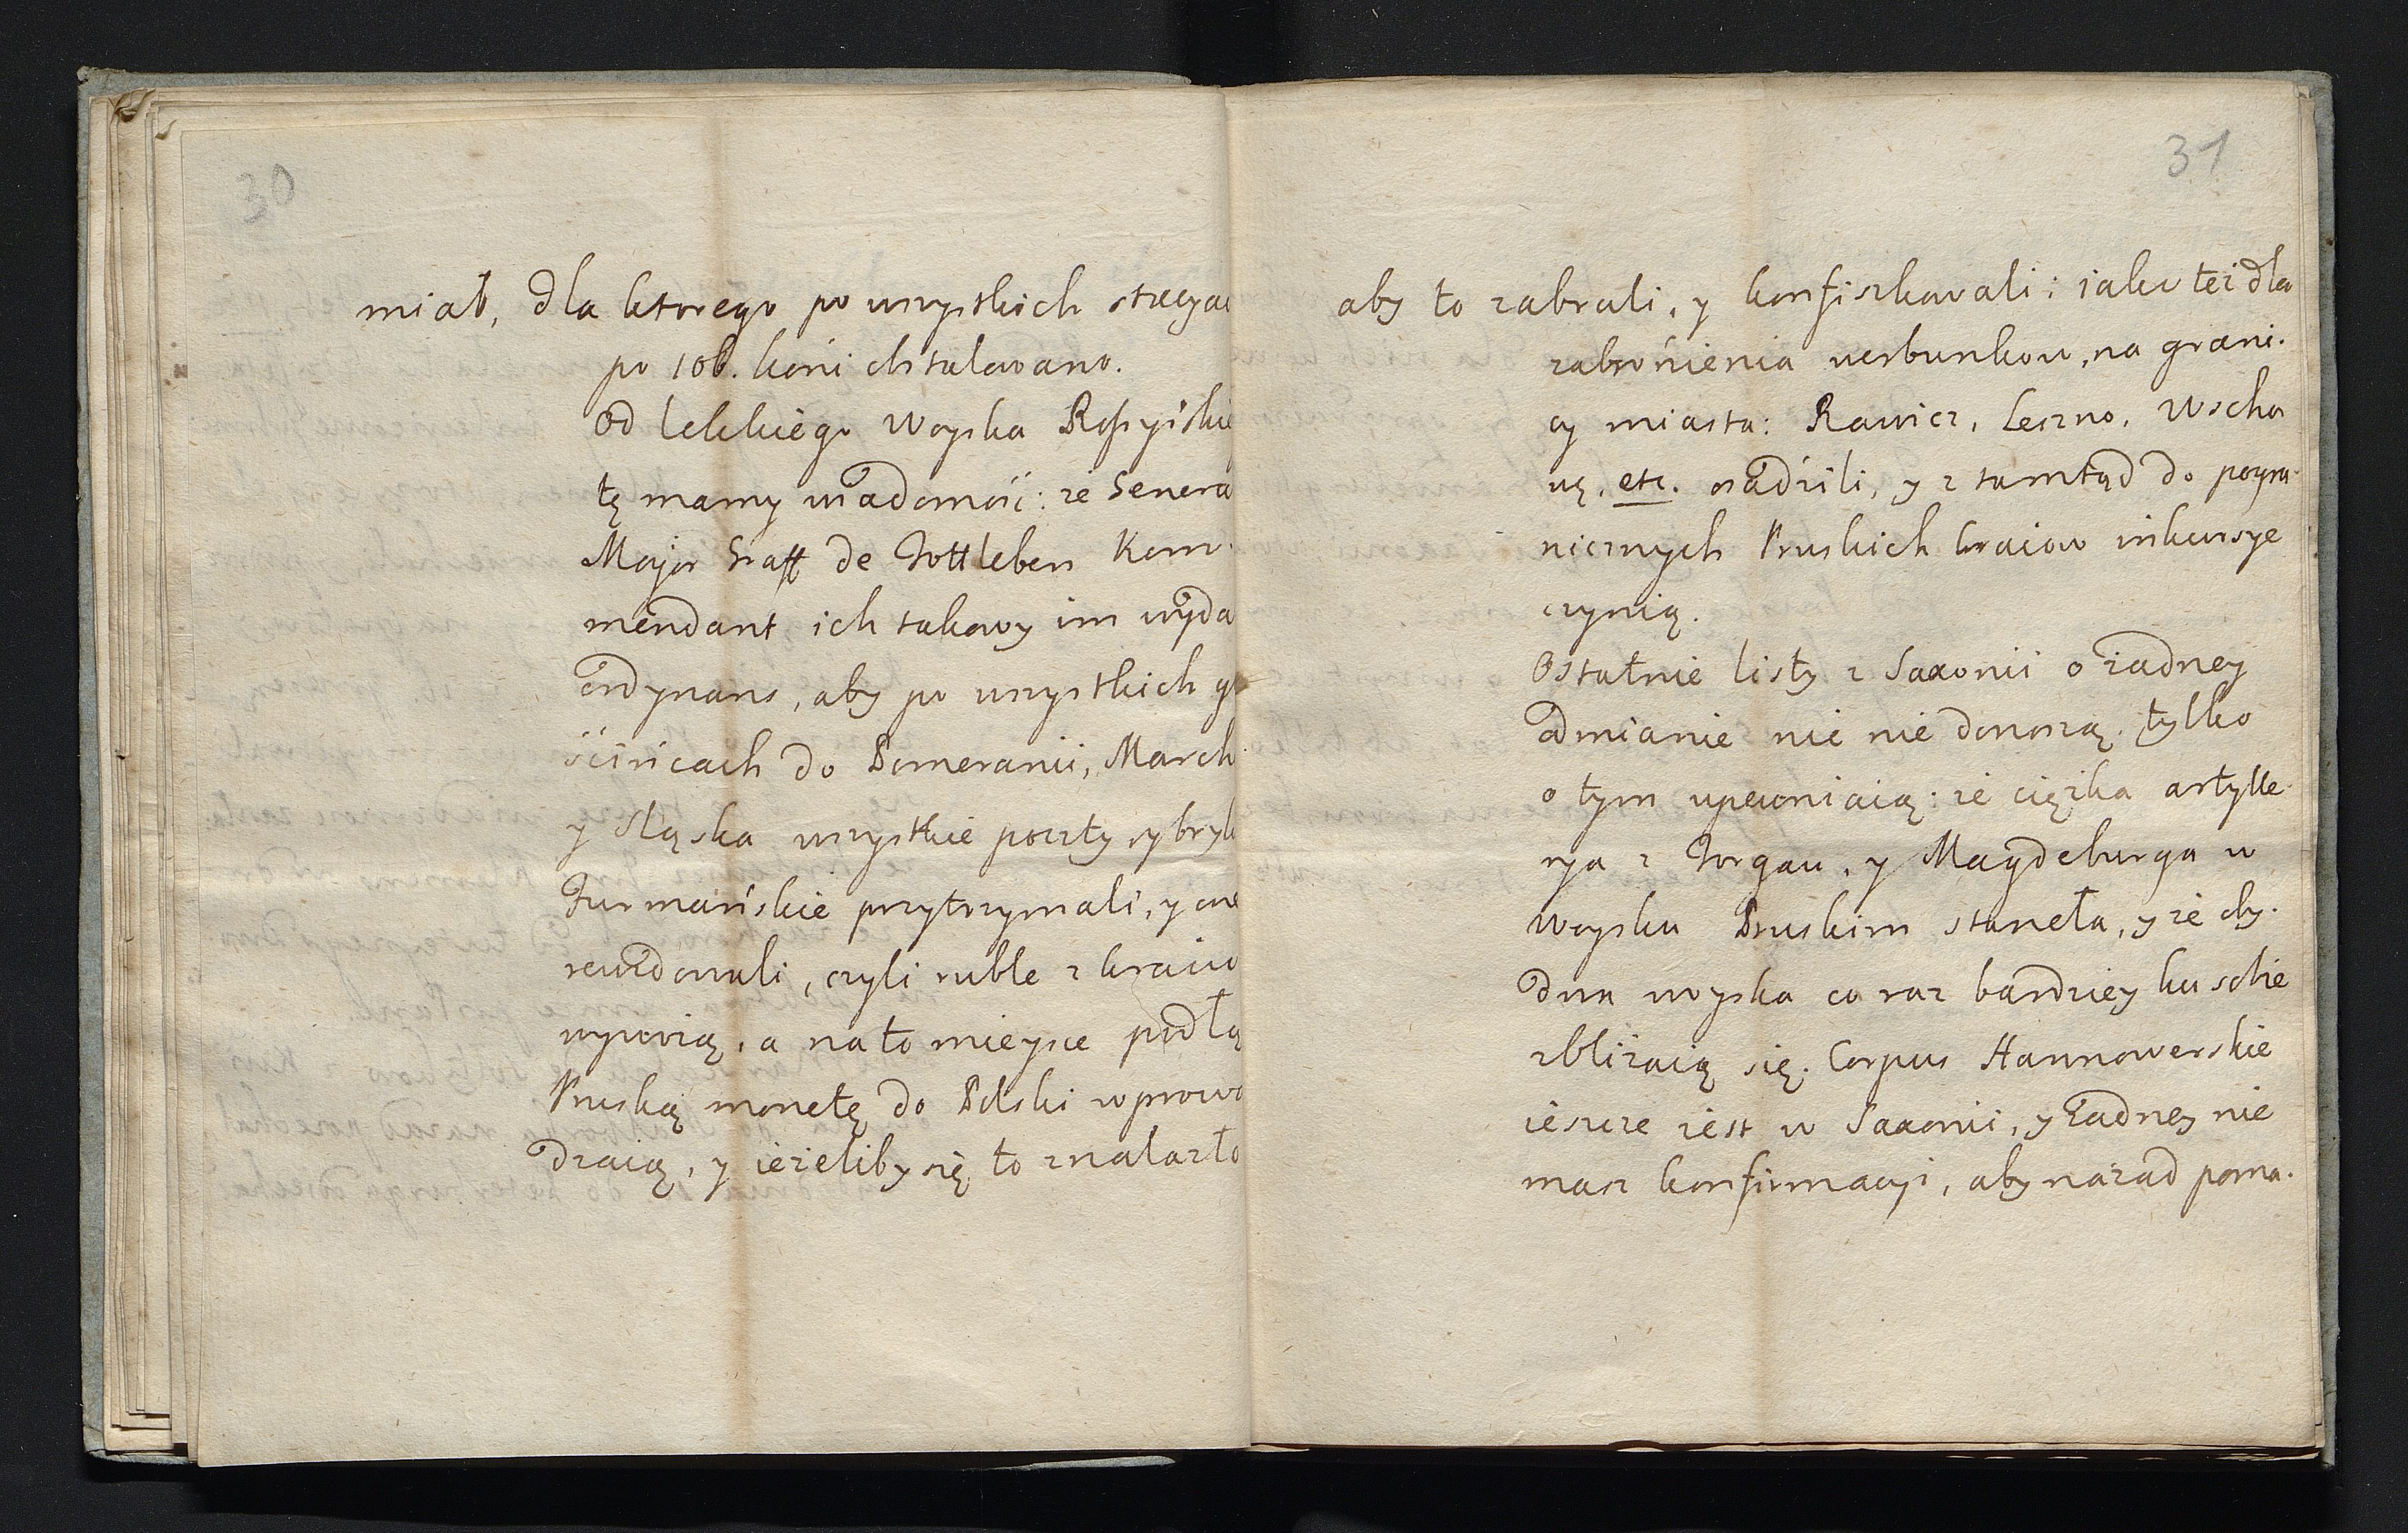 30
miał, dla ktorego po wszystkich stacya
po 106. koni chstalowano.
Od lekkiego Woyska Rossyiskie
tę mamy wiadomość: że Genera
Major Graff de Tottleben Kom-
mendant ich takowy im wyda
ordynans, aby po wszystkich go
ścińcach do Pomeranii, March
y Sląska wszystkie poczty y bryk
Furmańskie przytrzymali, y one
rewidowali, czyli ruble z kraiu
wywożą, a na to mieysce podłą
Pruską monetę do Polski wprowa
dzaią, y ieżeliby się to znalazło
31
aby to zabrali, y konfiszkowali: iako też dla
zabronienia werbunkow, na grani-
cy miasta: Rawicz, Leszno, Wscho
wę, etc. osadzili, y z tamtąd do pogra-
nicznych Pruskich kraiow inkursye
czynią.
Ostatnie listy z Saxonii o żadney
odmianie nic nie donoszą. tylko
o tym upewniaią: że ciężka artylle-
rya z Torgau, y Magdeburga w
Woysku Pruskim staneła, y że oby-
dwa woyska co raz bardziey ku sobie
zbliżaią się. Corpus Hannowerskie
ieszcze iest w Saxonii, y żadney nie
masz konfirmacyi, aby nazad poma-